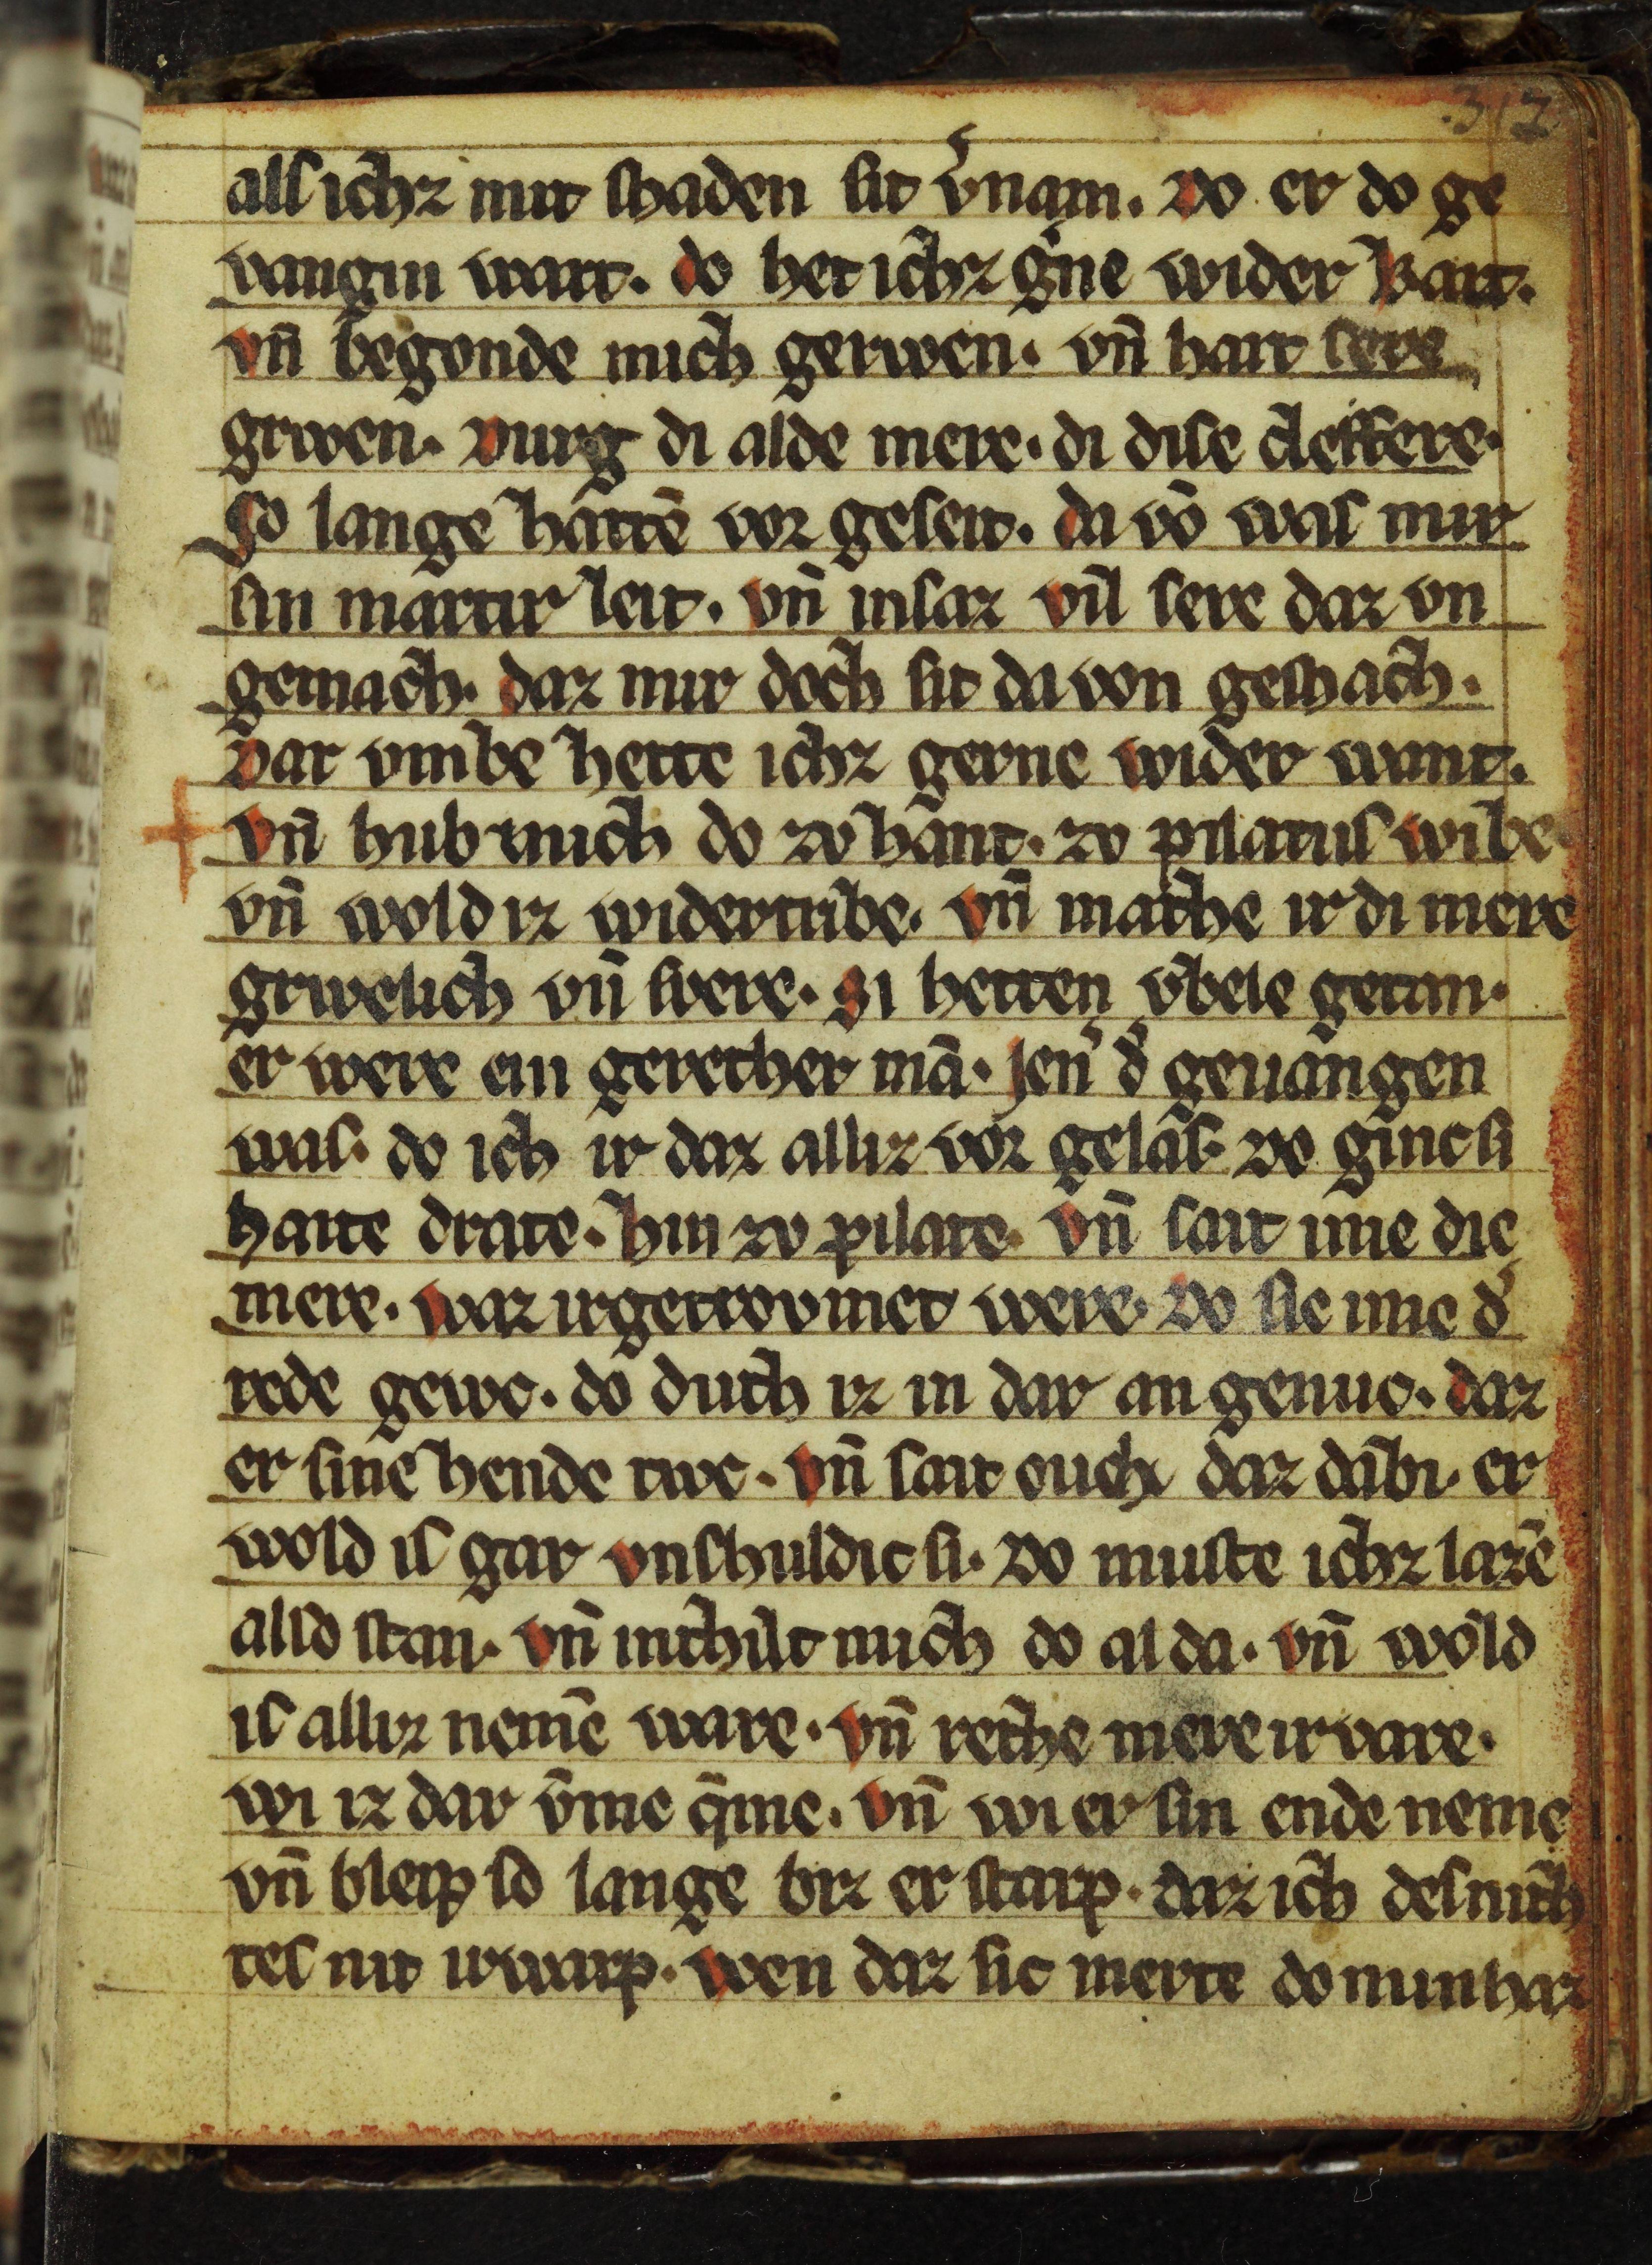 .312.
als ichz mit shaden sit v̾nam. Do er do ge
vangin wart. do het ichz g̾ne wider kart.
vn̄ begonde mich gerwen. vn̄ hart sere
grwen. Durg di alde mere. di dise cleffere.
So lange hattē vor geseit. da vō was mir
sin martir leit. vn̄ insaz vil sere daz vn
gemach. daz mir doch sit da von geshach.
Dar vmbe hette ichz gerne wider want.
vn̄ hub mich do zv hant. zv pilatus wibe.
vn̄ wold iz widertribe. vn̄ mache ir di mere
grwelich vn̄ svere. Si hetten vbele getan.
er were ein gerether mā. Jen̾ d̾ geuangen
was. do ich ir daz alliz vor gelas. Do ginc si
harte drate. hin zv pilate. vn̄ sait ime die
mere. waz ir getrovmet were. Do sie ime d̾
rede gewc. do duch iz in dar an genuc. daz
er sine hende twc. vn̄ sait ouch daz dabi. er
wold is gar vnshuldic si. Do muste ichz lazē
also stan. vn̄ inthilt mich do al da. vn̄ wold
is alliz nemē ware. vn̄ rethe mere irvare.
wi iz dar vm̄e q̄me. vn̄ wi er sin ende neme
vn̄ bleip so lange biz er starp. daz ich des nich
tes nit irwarp. wen daz sic merte do min haz